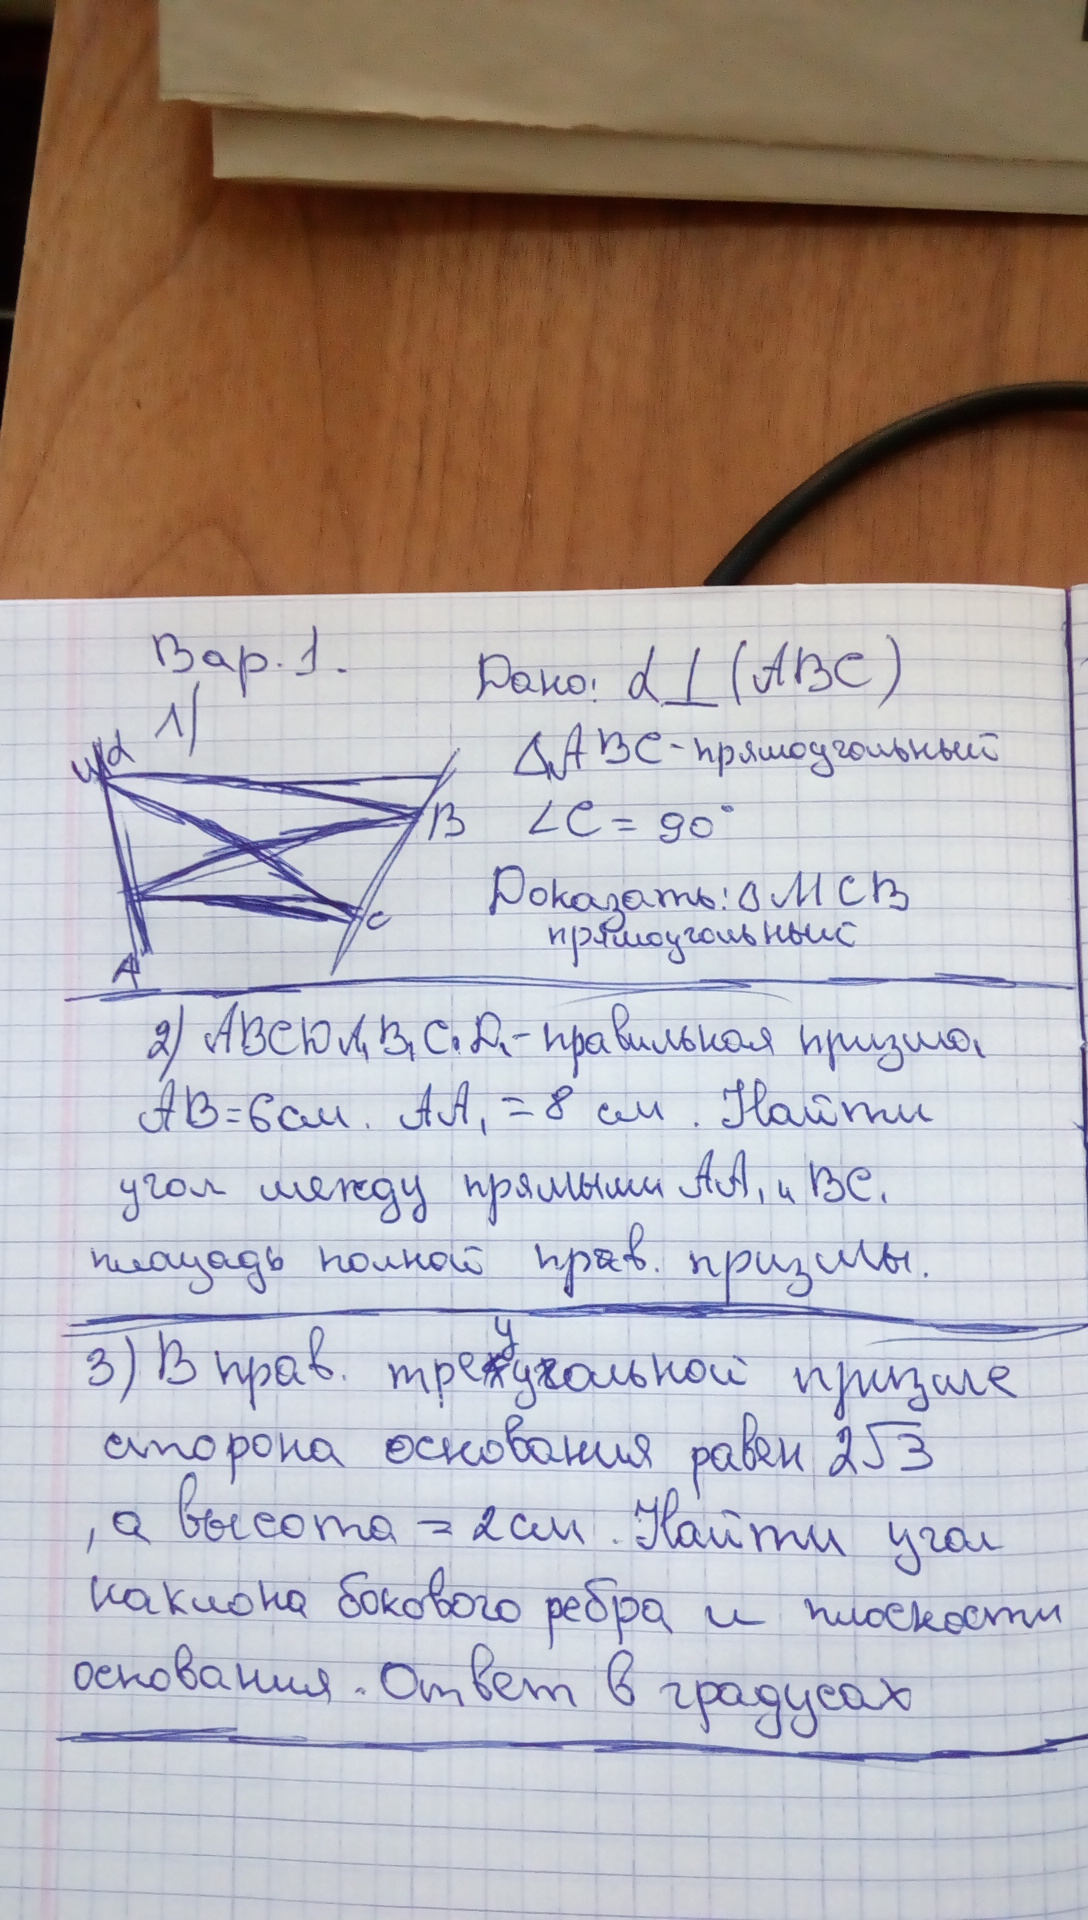 Вар. 1.
1)
Дано: α ⊥ (ABC)
ΔABC - прямоугольный
∠C = 90°
Доказать: ΔMCB
прямоугольный
M α
B
C
A
2) ABCDA₁B₁C₁D₁ - правильная призма.
AB = 6 см. AA₁ = 8 см. Найти
угол между прямыми AA₁ и BC₁
площадь полной прав. призмы.
3) В прав. треугольной призме
сторона основания равен 2√3
, а высота = 2 см. Найти угол
наклона бокового ребра и плоскости
основания. Ответ в градусах